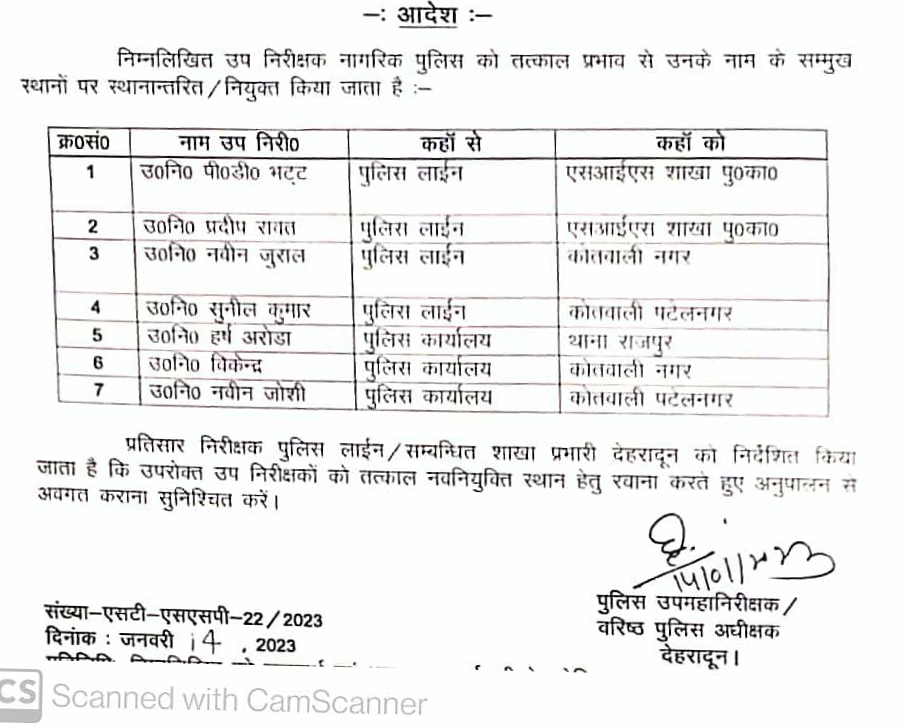 –: आदेश :–
निम्नलिखित उप निरीक्षक नागरिक पुलिस को तत्काल प्रभाव से उनके नाम के सम्मुख
स्थानों पर स्थानान्तरित/नियुक्त किया जाता है :–
क्र०सं० नाम उप निरी० कहॉ से कहॉ को
1 उ०नि० पी०डी० भट्ट पुलिस लाईन एसआईएस शाखा पु०का०
2 उ०नि० प्रदीप रावत पुलिस लाईन एसआईएस शाखा पु०का०
3 उ०नि० नवीन जुराल पुलिस लाईन कोतवाली नगर
4 उ०नि० सुनील कुमार पुलिस लाईन कोतवाली पटेलनगर
5 उ०नि० हर्ष अरोडा पुलिस कार्यालय थाना राजपुर
6 उ०नि० विकेन्द्र पुलिस कार्यालय कोतवाली नगर
7 उ०नि० नवीन जोशी पुलिस कार्यालय कोतवाली पटेलनगर
प्रतिसार निरीक्षक पुलिस लाईन/सम्बन्धित शाखा प्रभारी देहरादून को निर्देशित किया
जाता है कि उपरोक्त उप निरीक्षकों को तत्काल नवनियुक्ति स्थान हेतु रवाना करते हुए अनुपालन से
अवगत कराना सुनिश्चित करें।
14/01/2023
पुलिस उपमहानिरीक्षक/
वरिष्ठ पुलिस अधीक्षक
देहरादून।
संख्या–एसटी–एसएसपी–22/2023
दिनांक : जनवरी 14 , 2023
CS Scanned with CamScanner